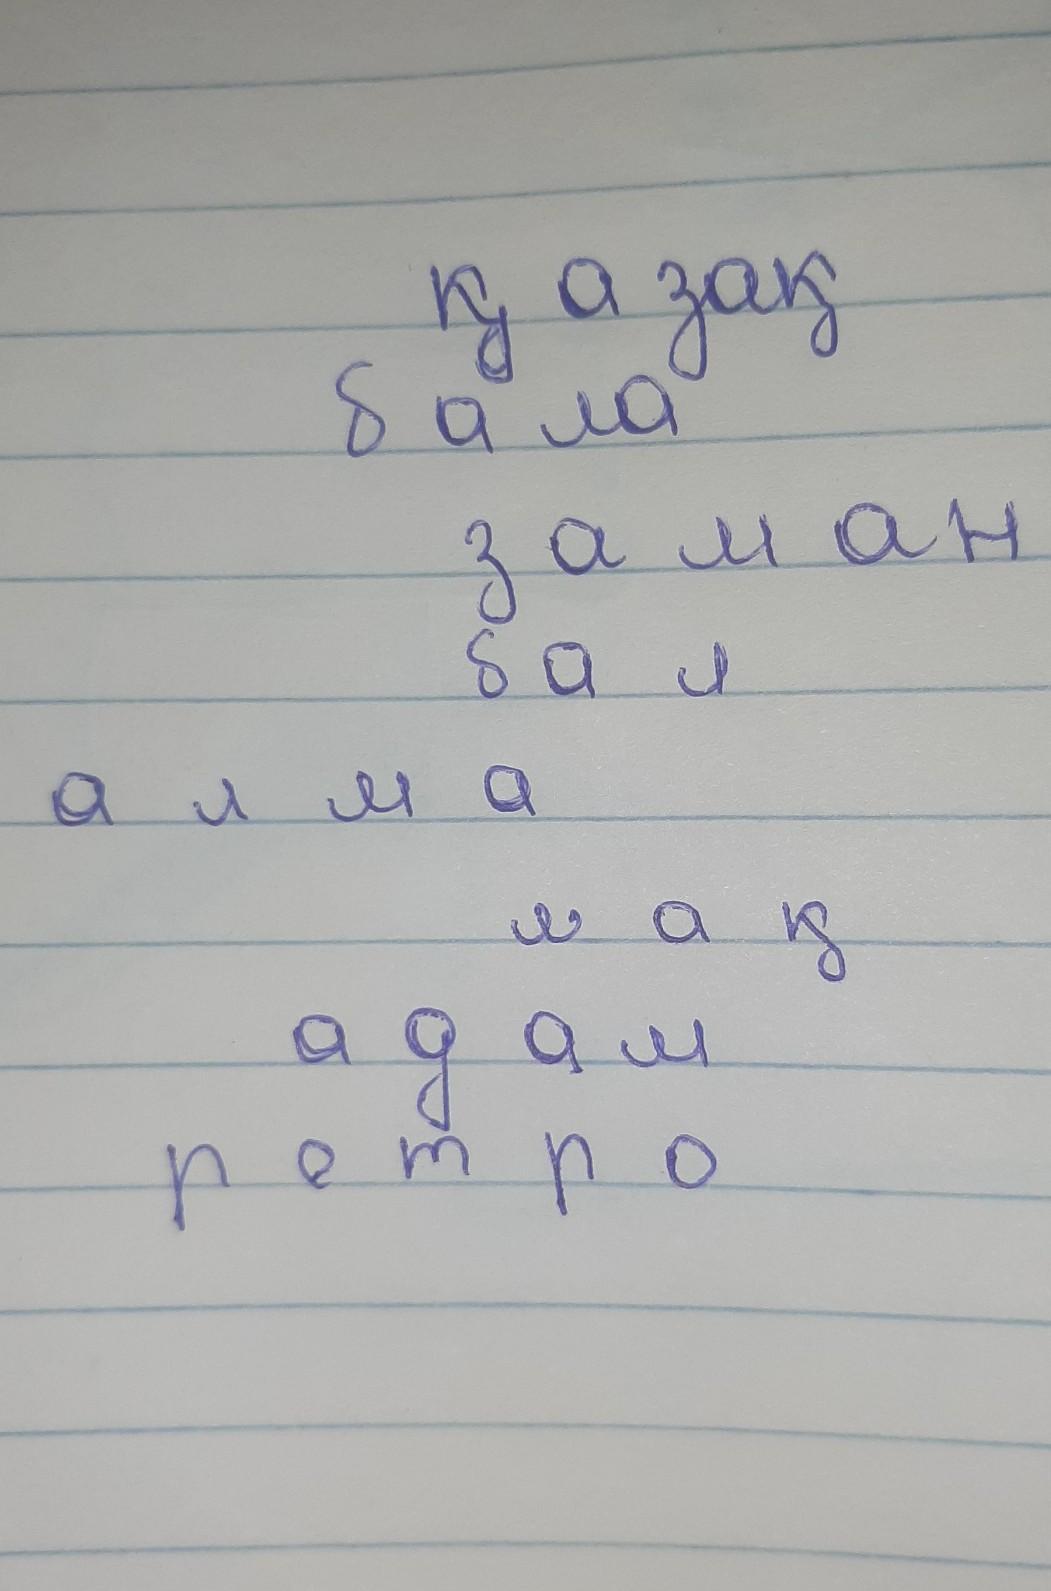 қазақ
бала
заман
бал
алма
лақ
адам
ретро